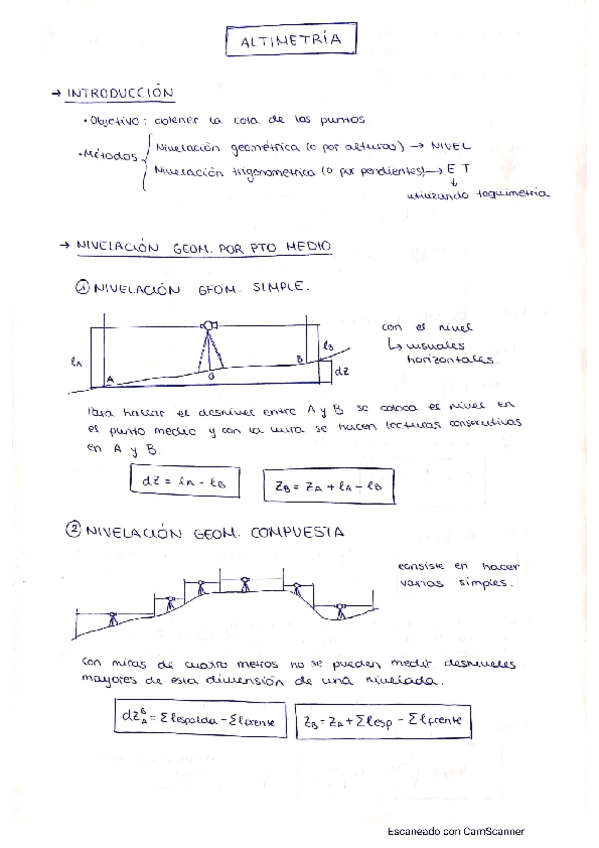 ALTIMETRÍA
→ INTRODUCCIÓN
• Objetivo: obtener la cota de los puntos
• Métodos
Nivelación geométrica (o por alturas) → NIVEL
Nivelación trigonométrica (o por pendientes) → E T
↓
utilizando taquimetria
→ NIVELACIÓN GEOM. POR PTO MEDIO
① NIVELACIÓN GEOM. SIMPLE.
con el nivel
↳ visuales
horizontales.
lA
A
O
B
lB
dZ
Para hallar el desnivel entre A y B se coloca el nivel en
el punto medio y con la mira se hacen lecturas consecutivas
en A y B.
dZ = lA - lB
ZB = ZA + lA - lB
② NIVELACIÓN GEOM. COMPUESTA
consiste en hacer
varias simples.
Con miras de cuatro metros no se pueden medir desniveles
mayores de esta dimensión de una nivelada.
dZ_A^B = Σ lespalda - Σ lfrente
ZB = ZA + Σ lesp - Σ lfrente
Escaneado con CamScanner